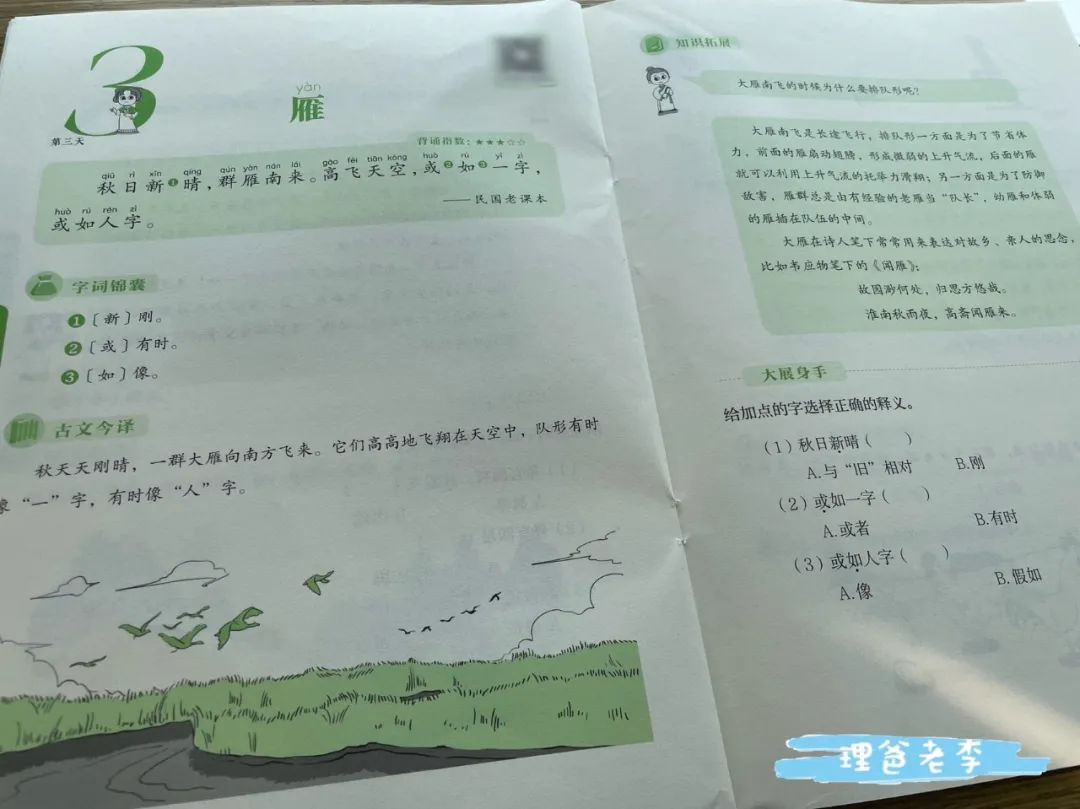 3
第三天
yàn
雁
背诵指数：★★★☆☆
qiū rì xīn qíng qún yàn nán lái gāo fēi tiān kōng huò rú yī zì
秋日新❶晴，群雁南来。高飞天空，或❷如❸一字，
huò rú rén zì
或如人字。
——民国老课本
字词锦囊
❶〔新〕刚。
❷〔或〕有时。
❸〔如〕像。
古文今译
秋天天刚晴，一群大雁向南方飞来。它们高高地飞翔在天空中，队形有时
像“一”字，有时像“人”字。
知识拓展
大雁南飞的时候为什么要排队形呢？
大雁南飞是长途飞行，排队形一方面是为了节省体
力，前面的雁扇动翅膀，形成微弱的上升气流，后面的雁
就可以利用上升气流的托举力滑翔；另一方面是为了防御
敌害，雁群总是由有经验的老雁当“队长”，幼雁和体弱
的雁插在队伍的中间。
大雁在诗人笔下常常用来表达对故乡、亲人的思念，
比如韦应物笔下的《闻雁》：
故园渺何处，归思方悠哉。
淮南秋雨夜，高斋闻雁来。
大展身手
给加点的字选择正确的释义。
（1）秋日新晴（ ）
A.与“旧”相对 B.刚
（2）或如一字（ ）
A.或者 B.有时
（3）或如人字（ ）
A.像 B.假如
理爸老李